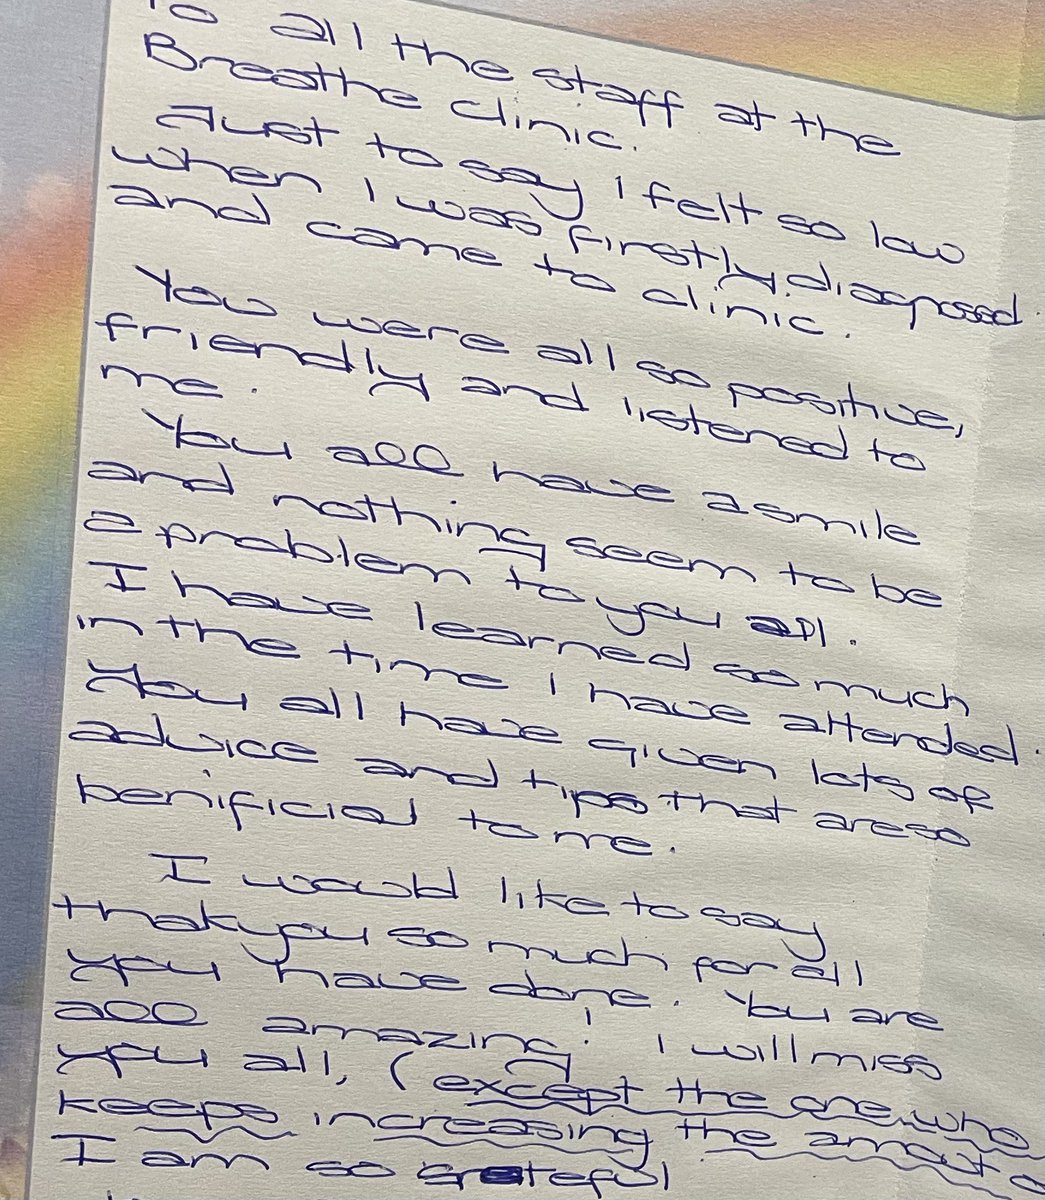 To all the staff at the
Breathe clinic.
Just to say I felt so low
when I was firstly diagnosed
and come to clinic.
You were all so positive,
friendly and listened to
me.
You all have a smile
and nothing seem to be
a problem to you all.
I have learned so much
in the time I have attended.
You all have given lots of
advice and tips that are so
benificial to me.
I would like to say
thakyou so much for all
you have done. You are
all amazing! I will miss
you all, (except the one who
keeps increasing the amout
I am so grateful